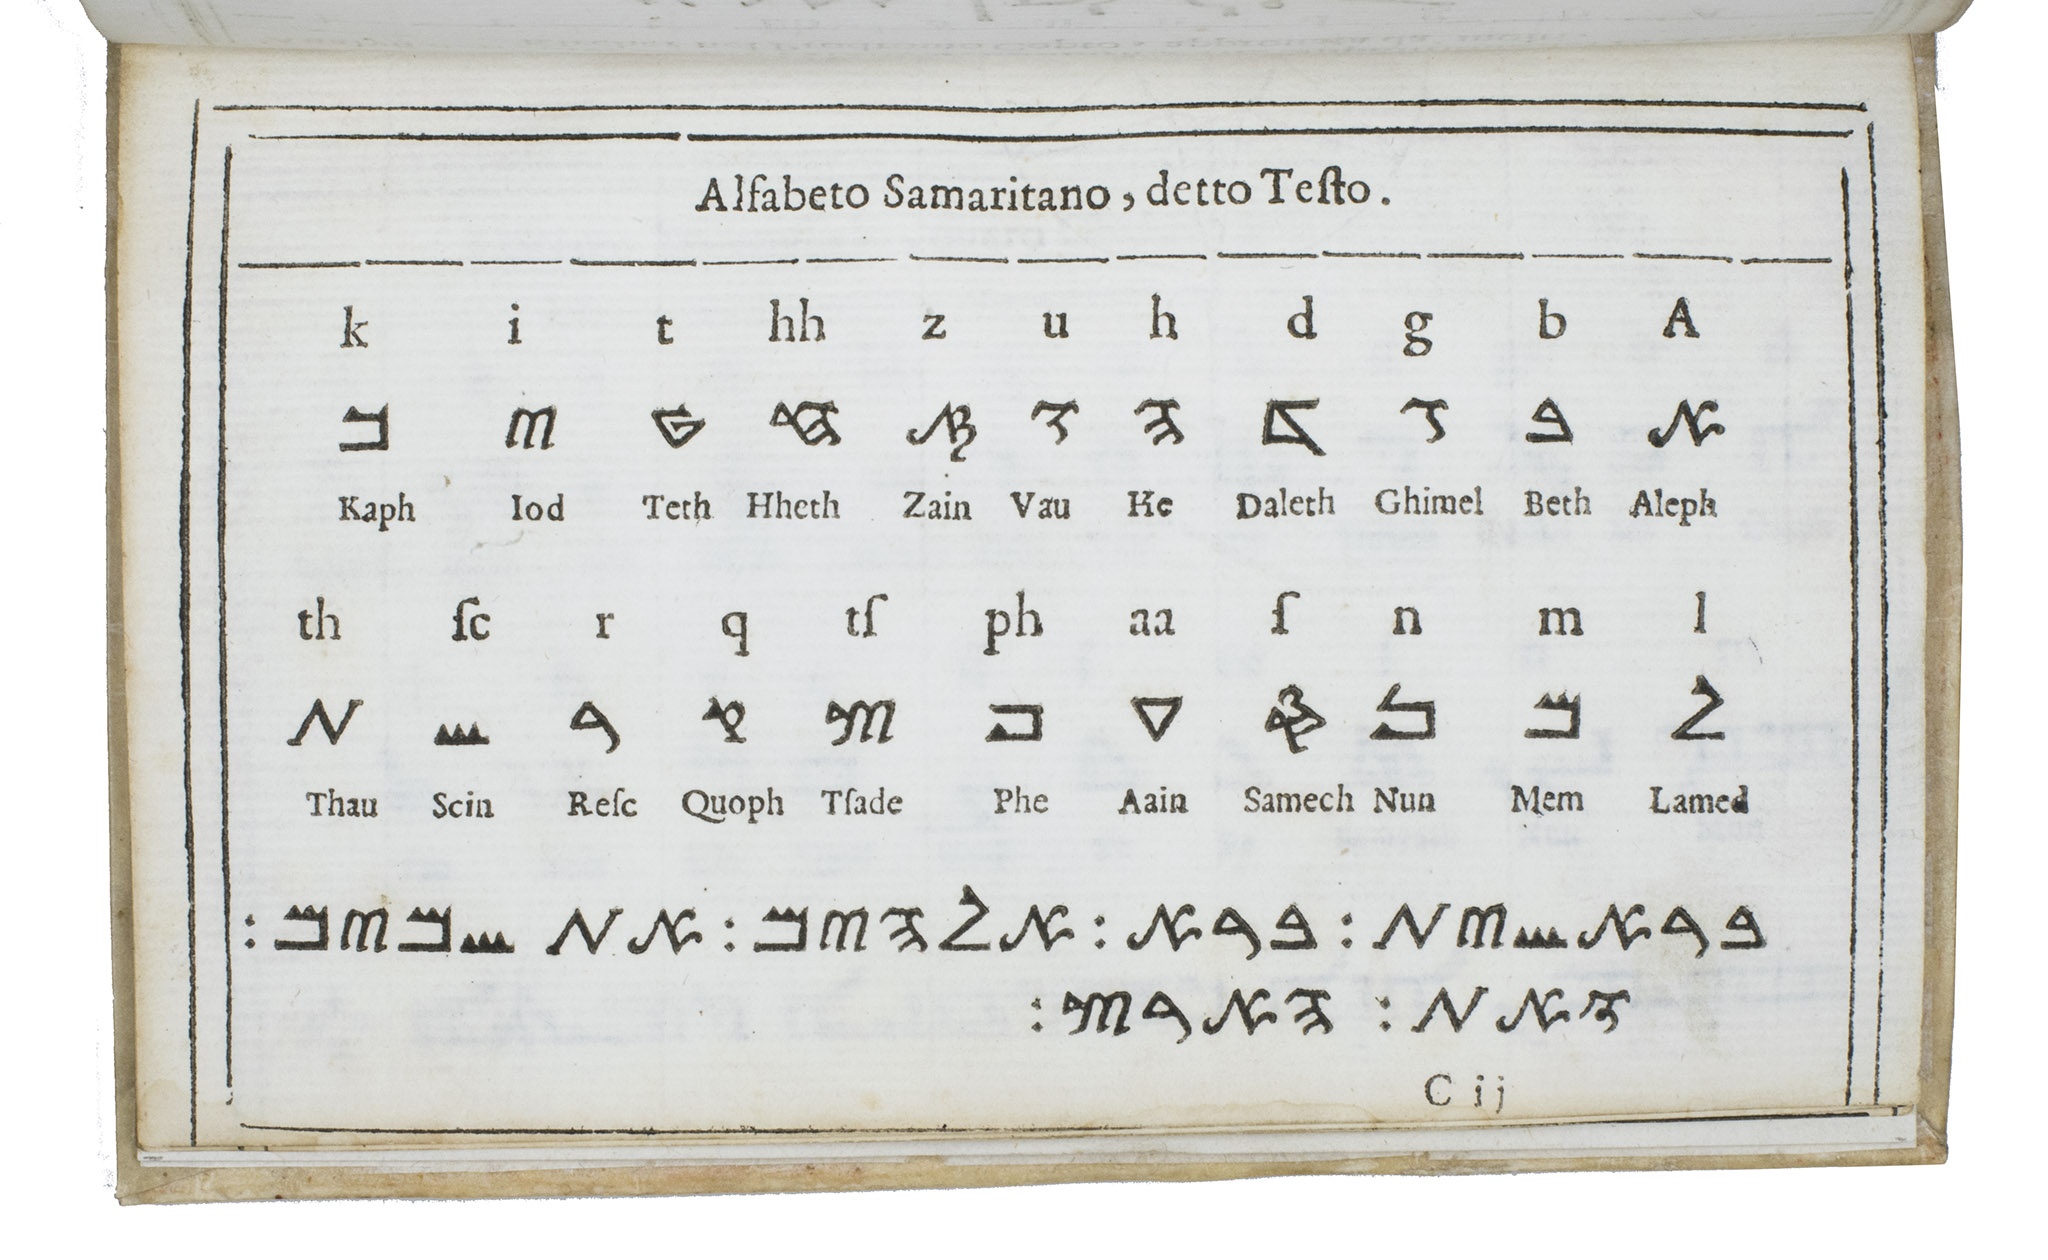 Alfabeto Samaritano, detto Teſto.
k i t hh z u h d g b A
ࠀ ࠁ ࠂ ࠃ ࠄ ࠅ ࠆ ࠇ ࠈ ࠉ ࠊ
Kaph Iod Teth Hheth Zain Vau He Daleth Ghimel Beth Aleph
th ſc r q tſ ph aa ſ n m l
ࠋ ࠌ ࠍ ࠎ ࠏ ࠐ ࠑ ࠒ ࠓ ࠔ ࠕ
Thau Scin Reſc Quoph Tſade Phe Aain Samech Nun Mem Lamed
ࠁࠓࠀࠔࠉࠕ : ࠁࠓࠀ : ࠀࠋࠄࠉࠌ : ࠀࠕ ࠔࠌࠉࠌ :
ࠅࠀࠕ : ࠄࠀࠓࠑ :
C ij